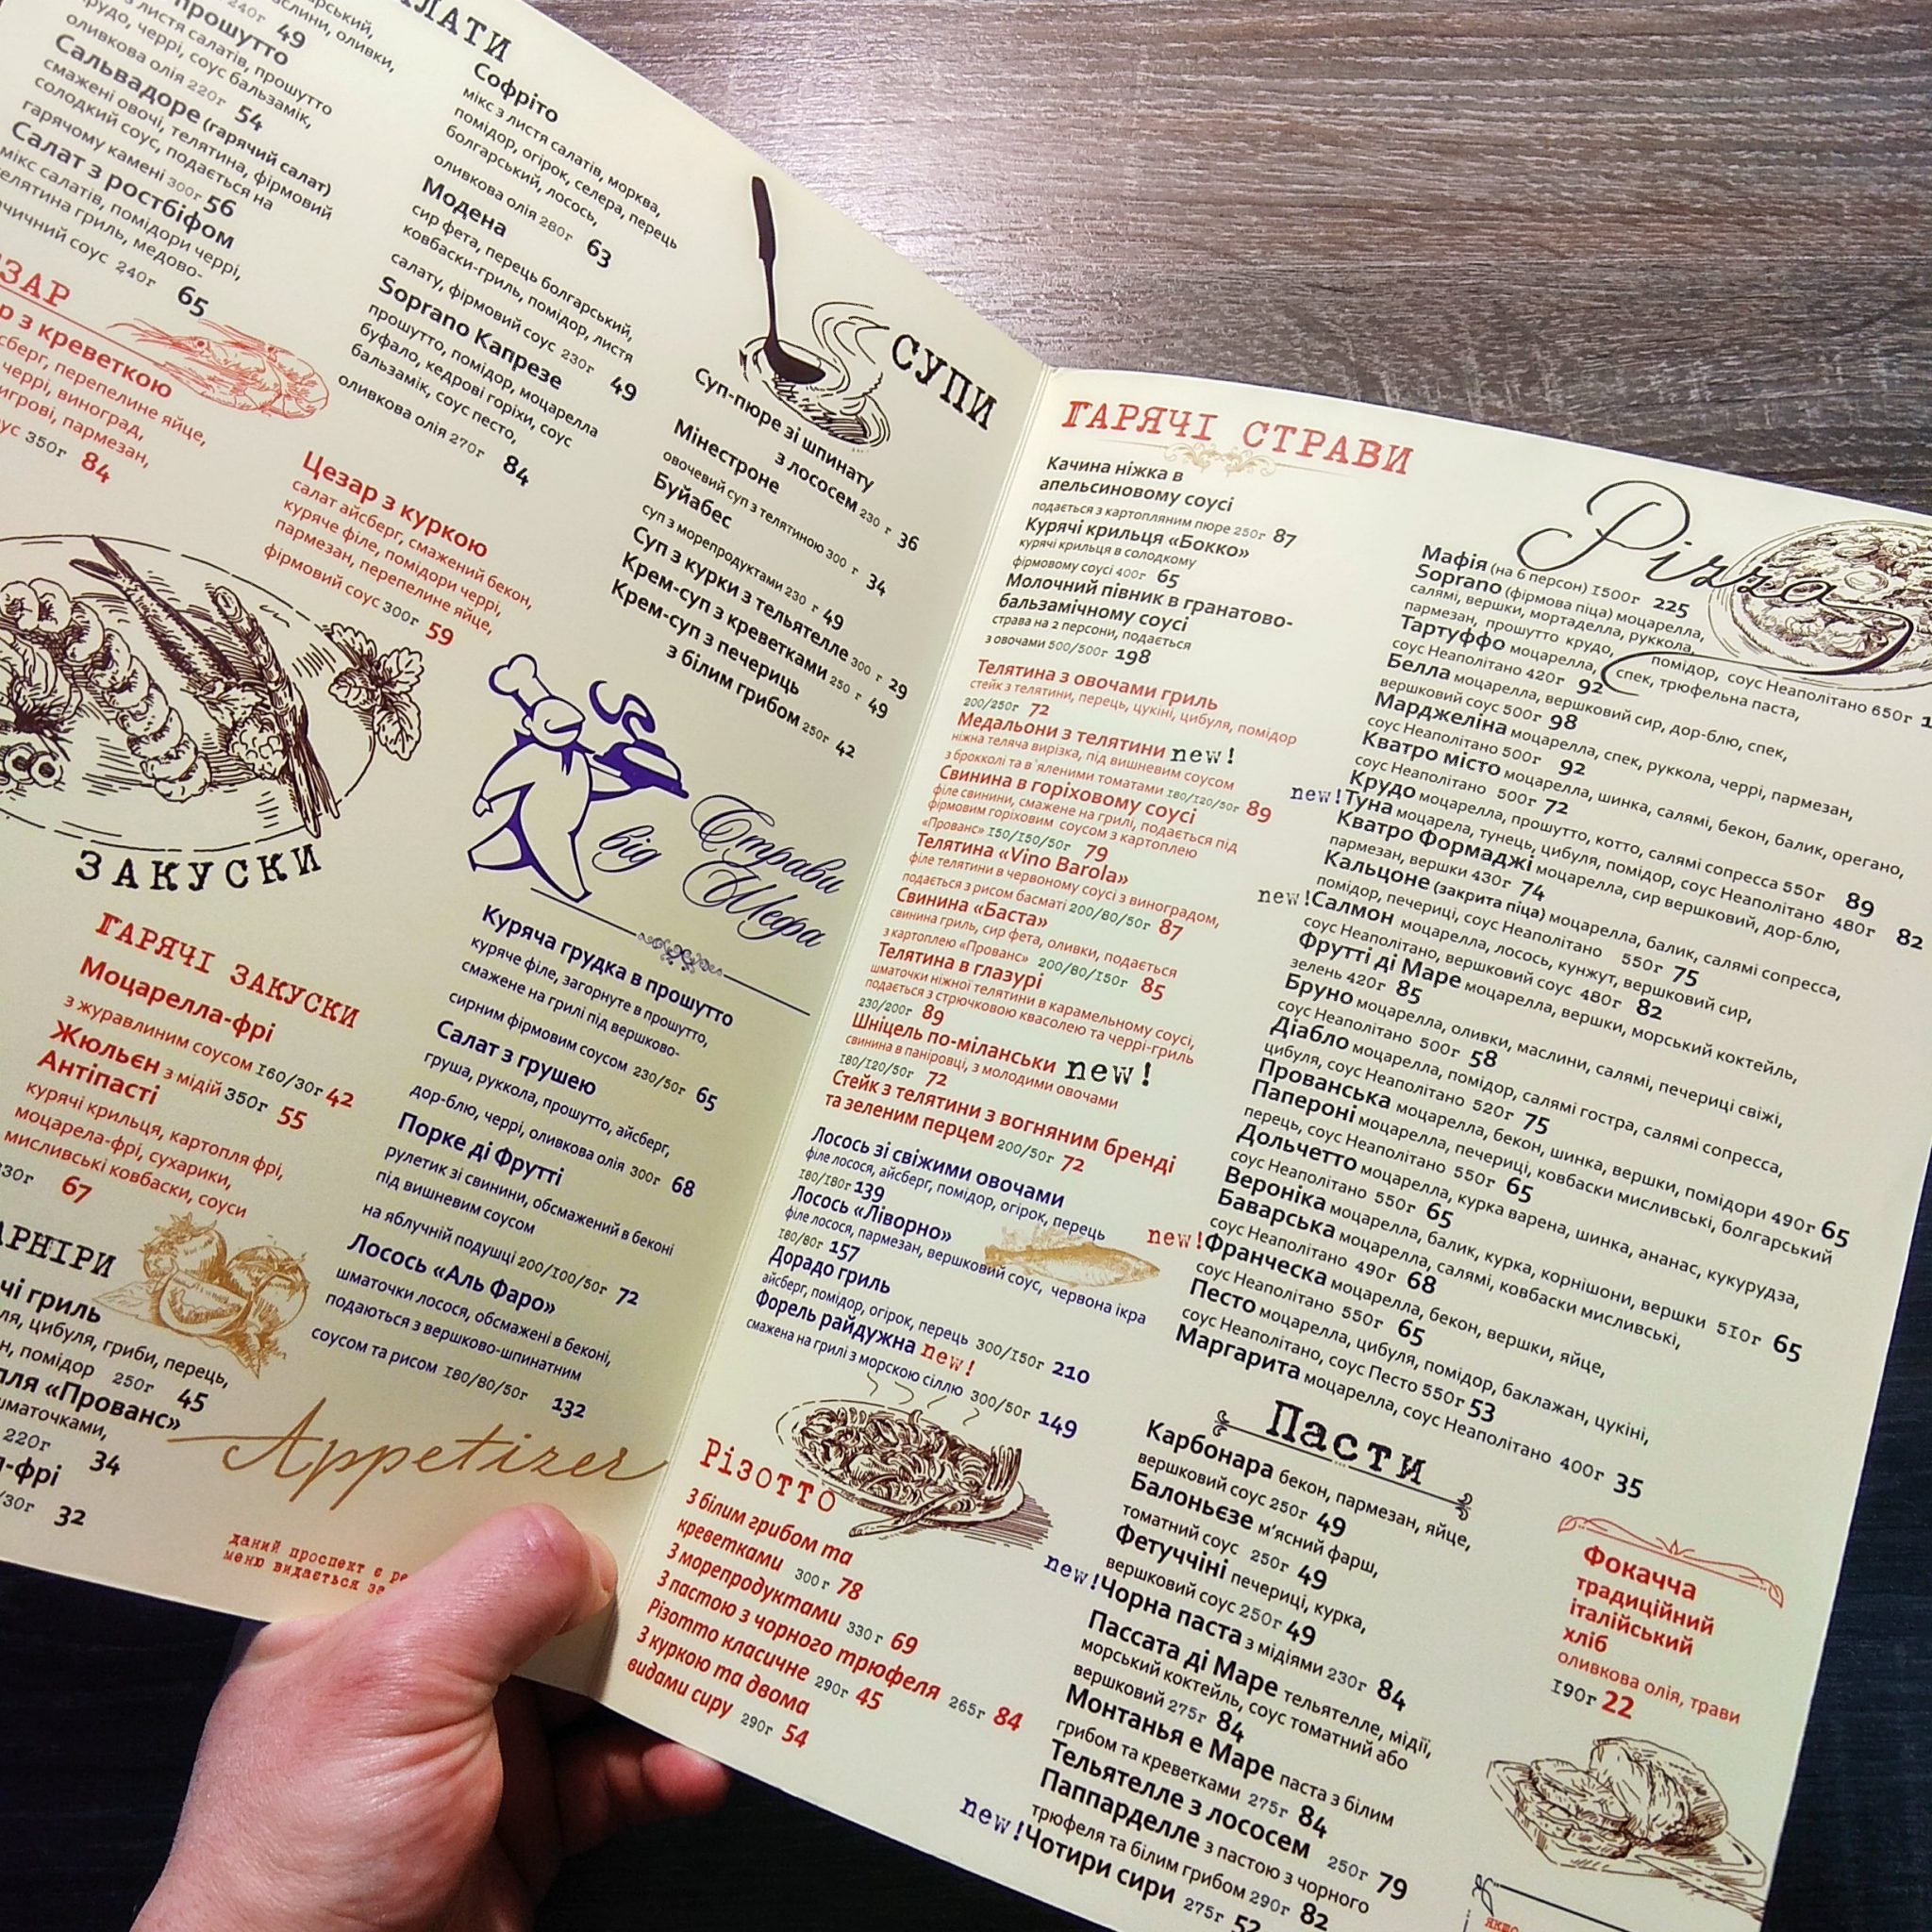 САЛАТИ
240г 49
прошутто
з листя салатів, прошутто
черрі, соус бальзамік,
оливкова олія 220г 54
Сальвадоре (гарячий салат)
смажені овочі, телятина, фірмовий
солодкий соус, подається на
гарячому камені 300г 56
Салат з ростбіфом
мікс салатів, помідори черрі,
телятина гриль, медово-
соус 240г 65
з креветкою
перепелине яйце,
черрі, виноград,
пармезан,
350г 84
Цезар з куркою
салат айсберг, смажений бекон,
куряче філе, помідори черрі,
пармезан, перепелине яйце,
фірмовий соус 300г 59
Софріто
мікс з листя салатів, морква,
помідор, огірок, селера, перець
болгарський, лосось,
оливкова олія 280г 63
Модена
сир фета, перець болгарський,
ковбаски-гриль, помідор, листя
салату, фірмовий соус 230г 49
Soprano Капрезе
прошутто, помідор, моцарелла
буфало, кедрові горіхи, соус
бальзамік, соус песто,
оливкова олія 270г 84
СУПИ
Суп-пюре зі шпинату
з лососем 230 г 36
Мінестроне
овочевий суп з телятиною 300 г 34
Буйабес
суп з морепродуктами 230 г 49
Суп з курки з тельятелле 300 г 29
Крем-суп з креветками 250 г 49
Крем-суп з печериць
з білим грибом 250г 42
ЗАКУСКИ
ГАРЯЧІ ЗАКУСКИ
Моцарелла-фрі
з журавлиним соусом 160/30г 42
Жюльєн з мідій 350г 55
Антіпасті
курячі крильця, картопля фрі,
моцарела-фрі, сухарики,
мисливські ковбаски, соуси
67
гриль
цибуля, гриби, перець,
помідор 250г 45
«Прованс»
шматочками,
220г 34
32
Страви
від
Шефа
Куряча грудка в прошутто
куряче філе, загорнуте в прошутто,
смажене на грилі під вершково-
сирним фірмовим соусом 230/50г 65
Салат з грушею
груша, руккола, прошутто, айсберг,
дор-блю, черрі, оливкова олія 300г 68
Порке ді Фрутті
рулетик зі свинини, обсмажений в беконі
під вишневим соусом
на яблучній подушці 200/100/50г 72
Лосось «Аль Фаро»
шматочки лосося, обсмажені в беконі,
подаються з вершково-шпинатним
соусом та рисом 180/80/50г 132
Appetizer
даний проспект є
меню видається
ГАРЯЧІ СТРАВИ
Качина ніжка в
апельсиновому соусі
подається з картопляним пюре 250г 87
Курячі крильця «Бокко»
курячі крильця в солодкому
фірмовому соусі 400г 65
Молочний півник в гранатово-
бальзамічному соусі
страва на 2 персони, подається
з овочами 500/500г 198
Телятина з овочами гриль
стейк з телятини, перець, цукіні, цибуля, помідор
200/250г 72
Медальони з телятини new!
ніжна теляча вирізка, під вишневим соусом
з брокколі та в'яленими томатами 180/120/50г 89
Свинина в горіховому соусі
філе свинини, смажене на грилі, подається під
фірмовим горіховим соусом з картоплею
«Прованс» 150/150/50г 79
Телятина «Vino Barola»
філе телятини в червоному соусі з виноградом,
подається з рисом басматі 200/80/50г 87
Свинина «Баста»
свинина гриль, сир фета, оливки, подається
з картоплею «Прованс» 200/80/150г 85
Телятина в глазурі
шматочки ніжної телятини в карамельному соусі,
подається з стрючковою квасолею та черрі-гриль
230/200г 89
Шніцель по-міланськи new!
свинина в паніровці, з молодими овочами
180/120/50г 72
Стейк з телятини з вогняним бренді
та зеленим перцем 200/50г 72
Лосось зі свіжими овочами
філе лосося, айсберг, помідор, огірок, перець
180/180г 139
Лосось «Ліворно»
філе лосося, пармезан, вершковий соус, червона ікра
180/80г 157
Дорадо гриль
айсберг, помідор, огірок, перець 300/150г 210
Форель райдужна new!
смажена на грилі з морскою сіллю 300/50г 149
Різотто
З білим грибом та
креветками 300г 78
З морепродуктами 330г 69
З пастою з чорного трюфеля 265г 84
Різотто класичне 290г 45
З куркою та двома
видами сиру 290г 54
Pizza
Мафія (на 6 персон) 1500г 225
Soprano (фірмова піца) моцарелла,
салямі, вершки, мортаделла, руккола,
пармезан, прошутто крудо, помідор, соус Неаполітано 650г
Тартуффо моцарелла, спек, трюфельна паста,
соус Неаполітано 420г 92
Белла моцарелла, вершковий сир, дор-блю, спек,
вершковий соус 500г 98
Марджеліна моцарелла, спек, руккола, черрі, пармезан,
соус Неаполітано 500г 92
Кватро місто моцарелла, шинка, салямі, бекон, балик, орегано,
соус Неаполітано 500г 72
Крудо моцарелла, прошутто, котто, салямі сопресса 550г 89
new! Туна моцарела, тунець, цибуля, помідор, соус Неаполітано 480г 82
Кватро Формаджі моцарелла, сир вершковий, дор-блю,
пармезан, вершки 430г 74
Кальцоне (закрита піца) моцарелла, балик, салямі сопресса,
помідор, печериці, соус Неаполітано 550г 75
new! Салмон моцарелла, лосось, кунжут, вершковий сир,
соус Неаполітано, вершковий соус 480г 82
Фрутті ді Маре моцарелла, вершки, морський коктейль,
зелень 420г 85
Бруно моцарелла, оливки, маслини, салямі, печериці свіжі,
соус Неаполітано 500г 58
Діабло моцарелла, помідор, салямі гостра, салямі сопресса,
цибуля, соус Неаполітано 520г 75
Прованська моцарелла, бекон, шинка, вершки, помідори 490г 65
Папероні моцарелла, печериці, ковбаски мисливські, болгарський
перець, соус Неаполітано 550г 65
Дольчетто моцарелла, курка варена, шинка, ананас, кукурудза,
соус Неаполітано 550г 65
Вероніка моцарелла, балик, курка, корнішони, вершки 510г 65
Баварська моцарелла, салямі, ковбаски мисливські,
соус Неаполітано 490г 68
new! Франческа моцарелла, бекон, вершки, яйце,
соус Неаполітано 550г 65
Песто моцарелла, цибуля, помідор, баклажан, цукіні,
соус Неаполітано, соус Песто 550г 53
Маргарита моцарелла, соус Неаполітано 400г 35
Пасти
Карбонара бекон, пармезан, яйце,
вершковий соус 250г 49
Балоньєзе м'ясний фарш,
томатний соус 250г 49
Фетуччіні печериці, курка,
вершковий соус 250г 49
new! Чорна паста з мідіями 230г 84
Пассата ді Маре тельятелле, мідії,
морський коктейль, соус томатний або
вершковий 275г 84
Монтанья е Маре паста з білим
грибом та креветками 275г 84
Тельятелле з лососем 250г 79
Паппарделле з пастою з чорного
трюфеля та білим грибом 290г 82
new! Чотири сири 275г 52
Фокачча
традиційний
італійський
хліб
оливкова олія, трави
190г 22